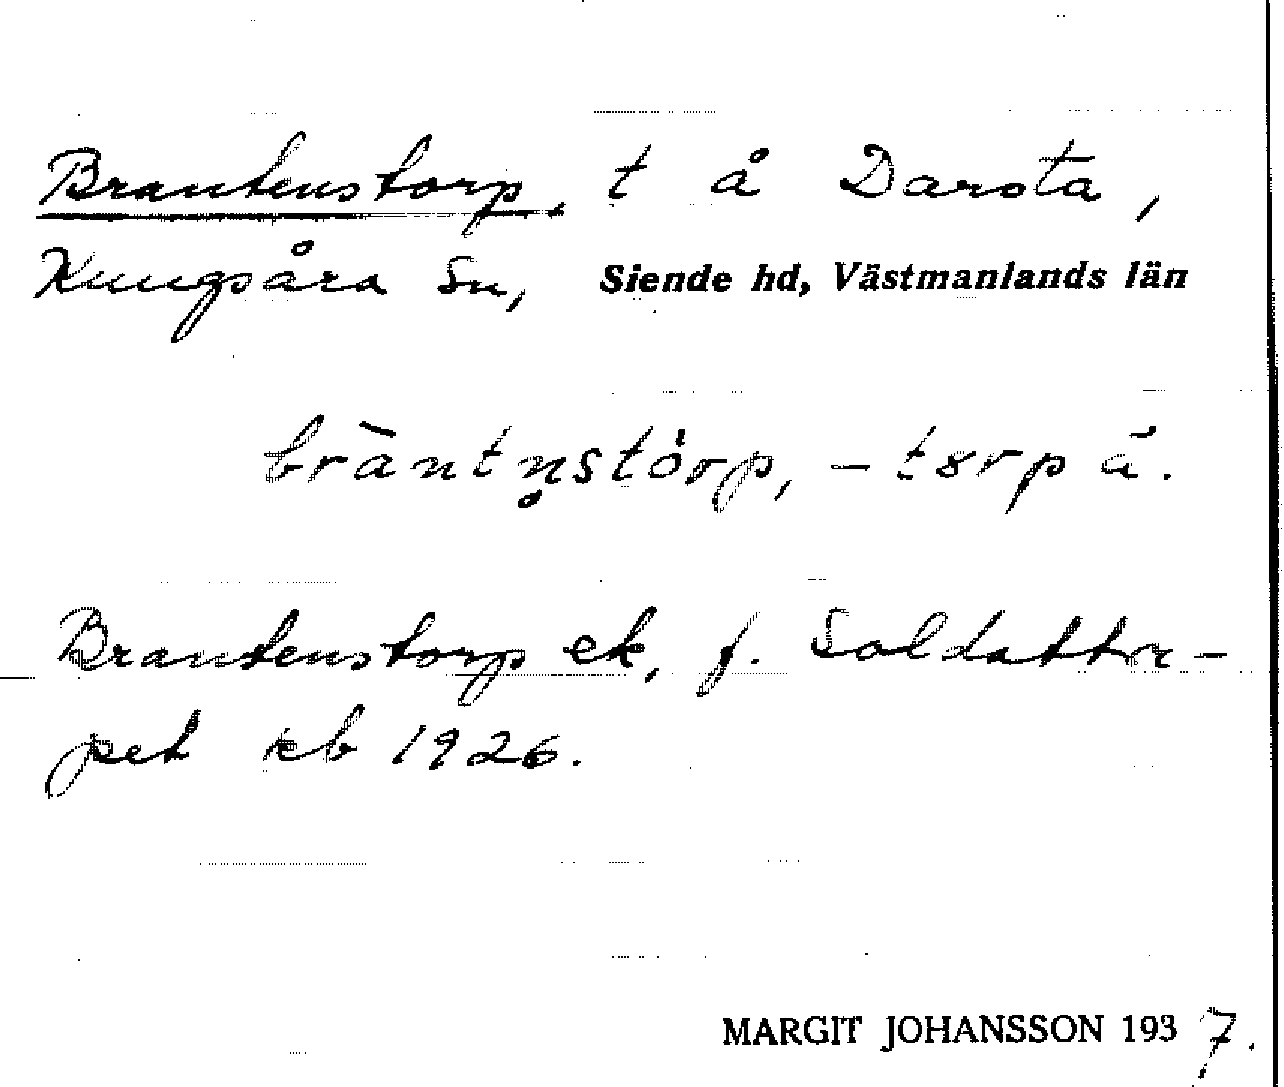 Brantenstorp, t å Darsta,
Kungsåra Sn, Siende hd, Västmanlands län
bràntn̥stórp, -tɤrp ā.
Brantenstorp ek, f. Soldattor-
pet kb 1926.
MARGIT JOHANSSON 1937.